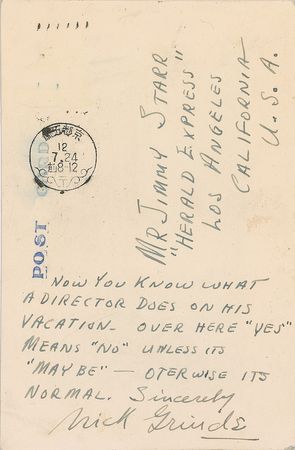 MR JIMMY STARR
"HERALD EXPRESS"
LOS ANGELES
CALIFORNIA
U.S.A.
12
7.24
8-12
POST CARD
NOW YOU KNOW WHAT
A DIRECTOR DOES ON HIS
VACATION - OVER HERE "YES"
MEANS "NO" UNLESS ITS
"MAYBE" — OTERWISE ITS
NORMAL. Sincerely
Nick Grinde